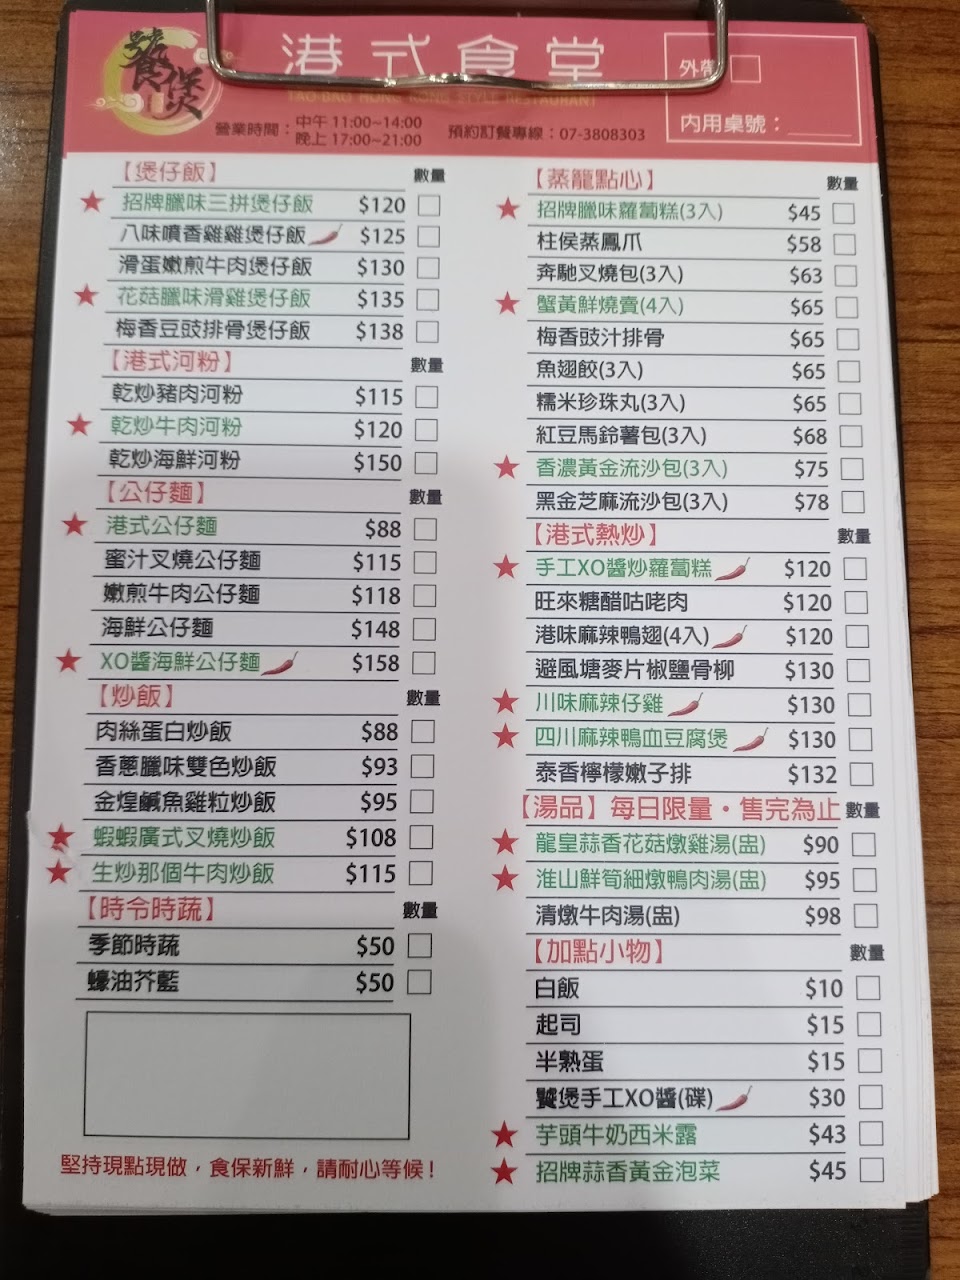 饕煲
港式食堂
TAO-BAO HONG KONG STYLE RESTAURANT
營業時間：中午 11:00~14:00
晚上 17:00~21:00
預約訂餐專線：07-3808303
外帶
內用桌號：
【煲仔飯】 數量
招牌臘味三拼煲仔飯 $120
八味噴香雞雞煲仔飯 $125
滑蛋嫩煎牛肉煲仔飯 $130
花菇臘味滑雞煲仔飯 $135
梅香豆豉排骨煲仔飯 $138
【港式河粉】 數量
乾炒豬肉河粉 $115
乾炒牛肉河粉 $120
乾炒海鮮河粉 $150
【公仔麵】 數量
港式公仔麵 $88
蜜汁叉燒公仔麵 $115
嫩煎牛肉公仔麵 $118
海鮮公仔麵 $148
XO醬海鮮公仔麵 $158
【炒飯】 數量
肉絲蛋白炒飯 $88
香蔥臘味雙色炒飯 $93
金煌鹹魚雞粒炒飯 $95
蝦蝦廣式叉燒炒飯 $108
生炒那個牛肉炒飯 $115
【時令時蔬】 數量
季節時蔬 $50
蠔油芥藍 $50
堅持現點現做，食保新鮮，請耐心等候！
【蒸籠點心】 數量
招牌臘味蘿蔔糕(3入) $45
柱侯蒸鳳爪 $58
奔馳叉燒包(3入) $63
蟹黃鮮燒賣(4入) $65
梅香豉汁排骨 $65
魚翅餃(3入) $65
糯米珍珠丸(3入) $65
紅豆馬鈴薯包(3入) $68
香濃黃金流沙包(3入) $75
黑金芝麻流沙包(3入) $78
【港式熱炒】 數量
手工XO醬炒蘿蔔糕 $120
旺來糖醋咕咾肉 $120
港味麻辣鴨翅(4入) $120
避風塘麥片椒鹽骨柳 $130
川味麻辣仔雞 $130
四川麻辣鴨血豆腐煲 $130
泰香檸檬嫩子排 $132
【湯品】每日限量・售完為止 數量
龍皇蒜香花菇燉雞湯(盅) $90
淮山鮮筍細燉鴨肉湯(盅) $95
清燉牛肉湯(盅) $98
【加點小物】 數量
白飯 $10
起司 $15
半熟蛋 $15
饕煲手工XO醬(碟) $30
芋頭牛奶西米露 $43
招牌蒜香黃金泡菜 $45